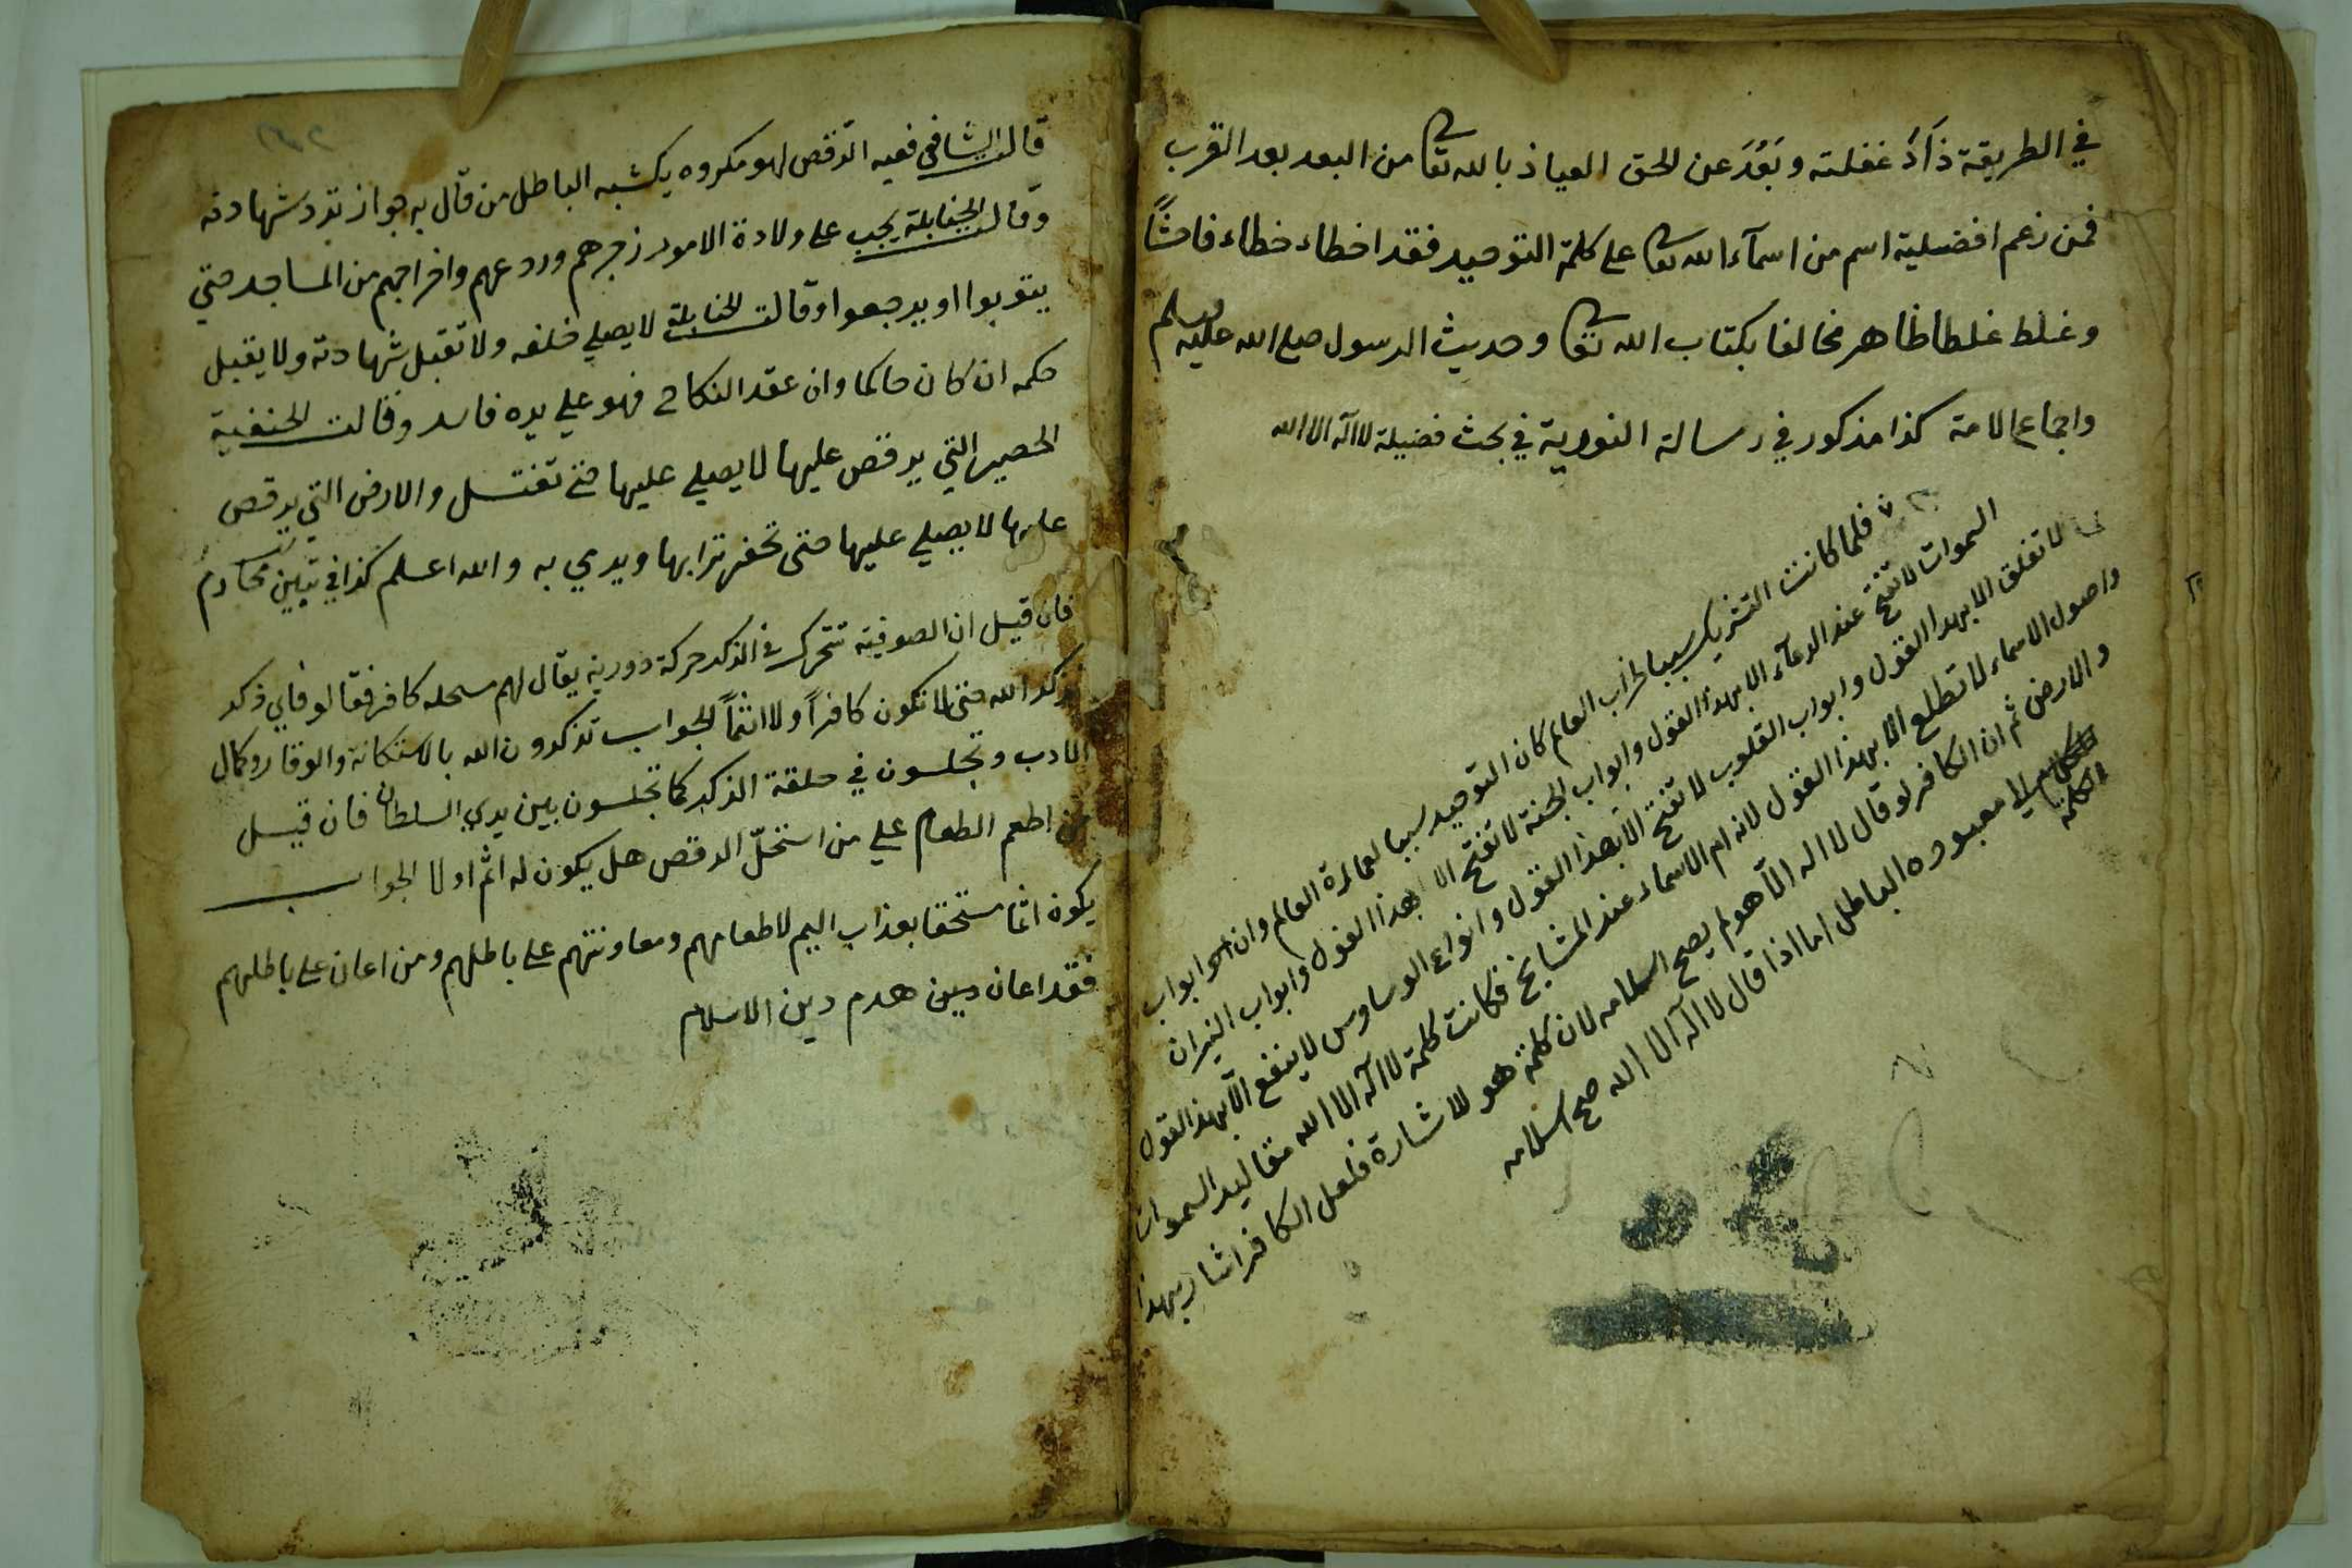 في الطريقة زَادَ غفلته وبَعُدَ عن الحق العياذ بالله تعالى من البعد بعد القرب
فمن زعم افضلية اسم من اسمآء الله تعالى على كلمة التوحيد فقد اخطاء خطاء فاحشًا
وغلط غلطا ظاهر مخالفا بكتاب الله تعالى وحديث الرسول صلى الله عليه وسلم
واجماع الامة كذا مذكور في رسالة النورية في بحث فضيلة لا اله الا الله
فلما كانت التشريك سببا لخراب العالم كان التوحيد سببا لعمارة العالم وان ابواب
السموات لا تفتح عند الدعآء الا بهذا القول وابواب الجنة لا تفتح الا بهذا القول وابواب النيران
لا تغلق الا بهذا القول وابواب القلوب لا تفتح الا بهذا القول وانواع الوساوس لا يندفع الا بهذا القول
واصول الاسماء لا تطلع الا بهذا القول لانه ام الاسماء عند المشايخ فكانت كلمة لا اله الا الله مقاليد السموات
والارض ثم ان الكافر لو قال لا اله الا هو لم يصح اسلامه لان كلمة هو للاشارة فلعل الكافر اشار بهذا
الكلمة
الى معبوده الباطل اما اذا قال لا اله الا الله صح اسلامه
قال الشافعي فعيه الرقص لهو مكروه يشبه الباطل من قال به جواز ترد شهادته
وقالت الحنابلة يجب على ولادة الامور زجرهم وردعهم واخراجهم من المساجد حتى
يتوبوا او يرجعوا وقالت الحنابلة لا يصلي خلفه ولا تقبل شهادته ولا يقبل
حكمه ان كان حاكما وان عقد النكاح فهو على يده فاسد وقالت الحنفية
الحصير التي يرقص عليها لا يصلي عليها حتى تغتسل والارض التي يرقص
عليها لا يصلي عليها حتى تحفر ترابها ويرمي به والله اعلم كذا في تبيين محارم
فان قيل ان الصوفية تتحرك في الذكر حركة دورية يقال لهم مستحله كافر فقالوا فاي ذكر
نذكر الله حتى لا نكون كافراً ولا اثماً الجواب تذكرون الله بالاستكانة والوقار وكمال
الادب وتجلسون في حلقة الذكر كما تجلسون بين يدي السلطان فان قيل
من اطعم الطعام على من استحلّ الرقص هل يكون له اثم اولا الجواب
يكون اثما مستحقا بعذاب اليم لاطعامهم ومعاونتهم على باطلهم ومن اعان على باطلهم
فقد اعان دبين هدم دين الاسلام